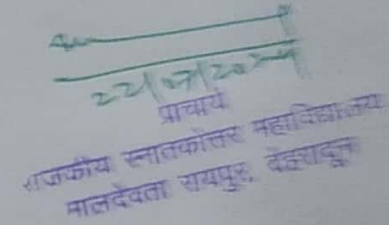 22/07/2024
प्राचार्य
राजकीय स्नातकोत्तर महाविद्यालय
मालदेवता रायपुर, देहरादून